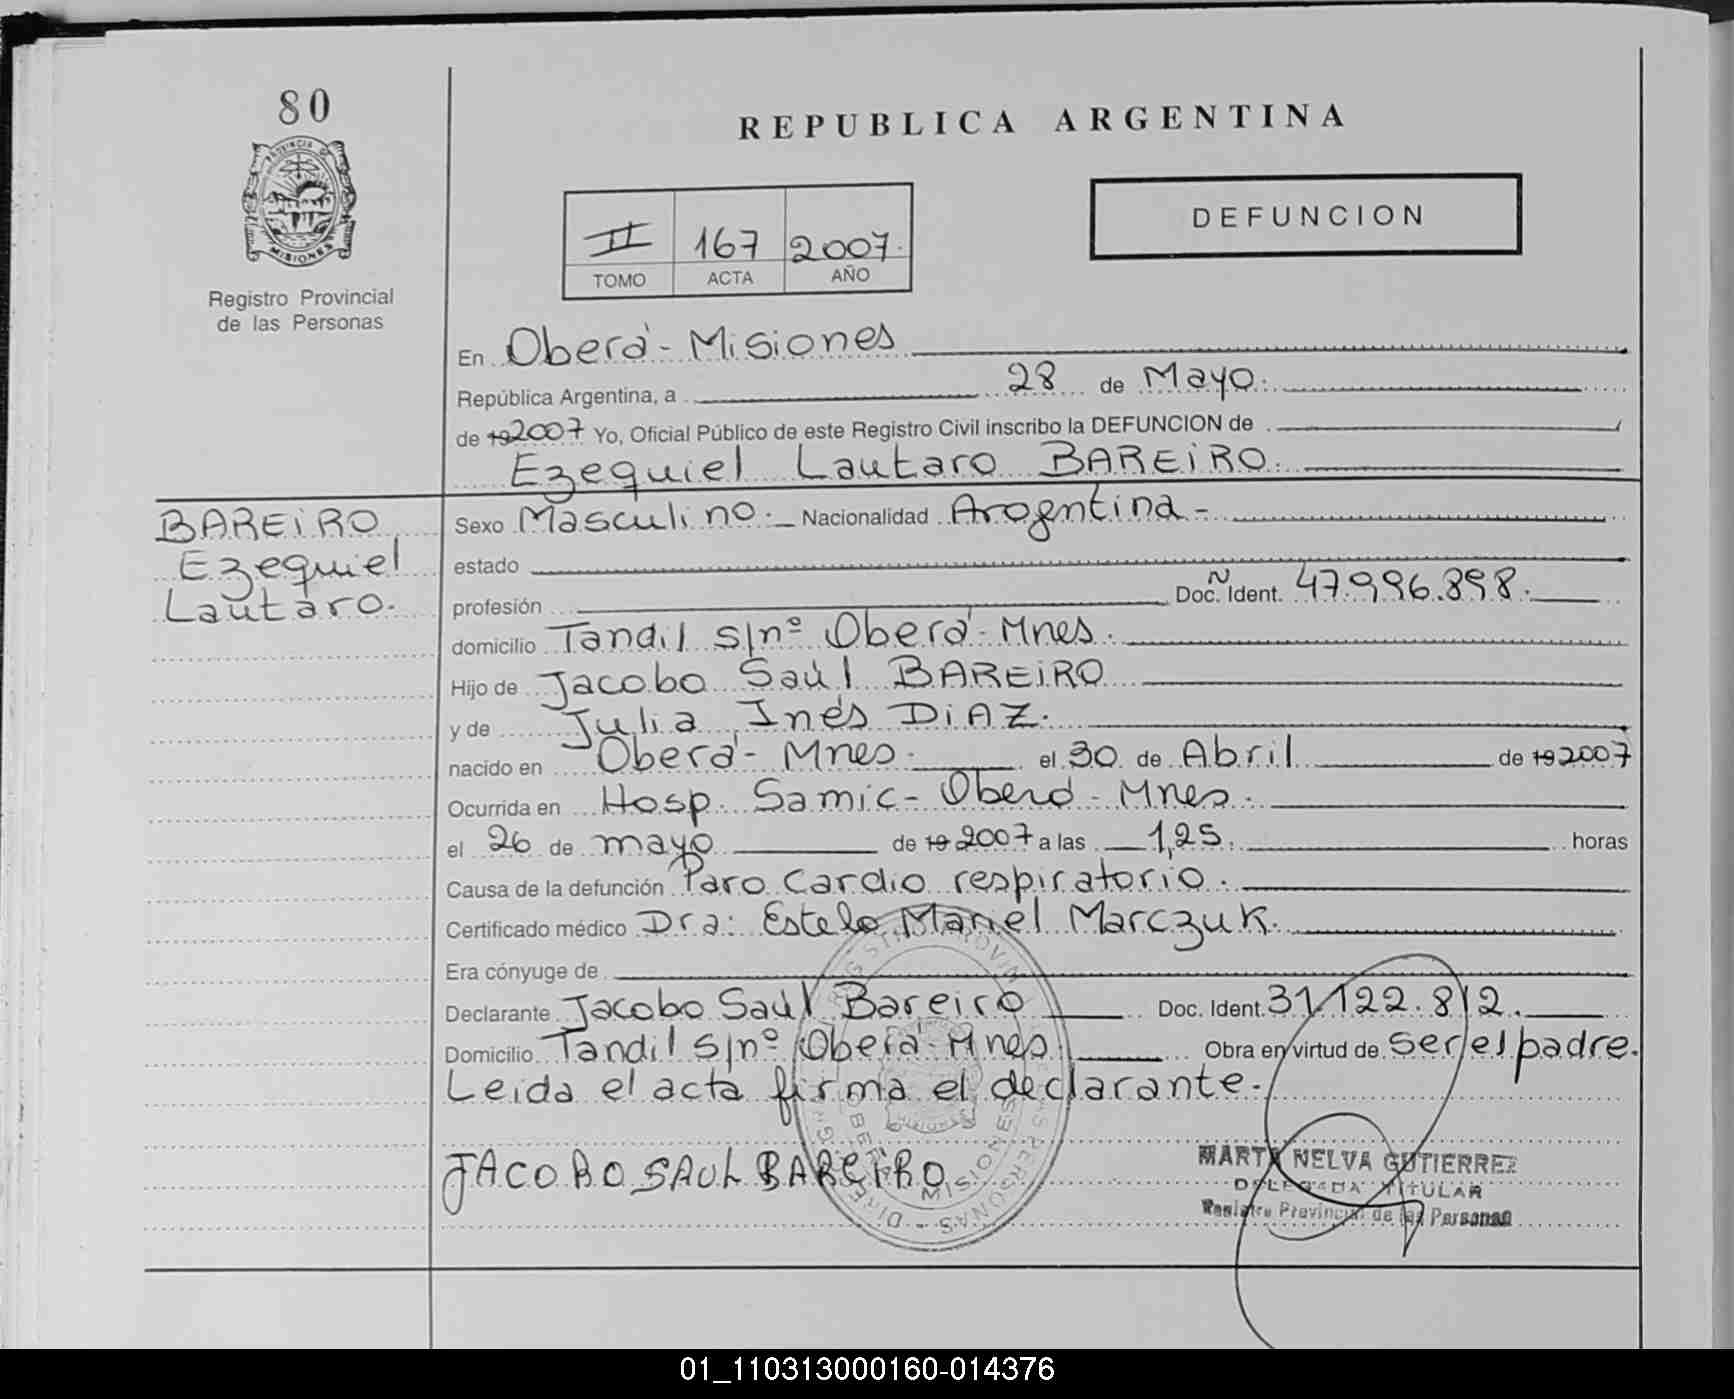 80
REPUBLICA ARGENTINA
PROVINCIA DE
MISIONES
Registro Provincial
de las Personas
II 167 2007.
TOMO ACTA AÑO
DEFUNCION
En Oberá - Misiones
República Argentina, a 28 de Mayo.
de 19 2007 Yo, Oficial Público de este Registro Civil inscribo la DEFUNCION de
Ezequiel Lautaro BAREIRO.
BAREIRO
Ezequiel
Lautaro.
Sexo Masculino. Nacionalidad Argentina -
estado
profesión Doc. Ñ Ident. 47.996.898.
domicilio Tandil s/nº Oberá - Mnes.
Hijo de Jacobo Saúl BAREIRO
y de Julia Inés DIAZ.
nacido en Oberá - Mnes. el 30 de Abril de 19 2007
Ocurrida en Hosp. Samic - Oberá - Mnes.
el 26 de mayo de 19 2007 a las 1,25. horas
Causa de la defunción Paro Cardio respiratorio.
Certificado médico Dra: Estela Mariel Marczuk.
Era cónyuge de
Declarante Jacobo Saúl Bareiro Doc. Ident. 31.122.812.
Domicilio Tandil s/nº Oberá - Mnes. Obra en virtud de ser el padre.
Leida el acta firma el declarante.
JACOBO SAUL BAREIRO
MARTA NELVA GUTIERREZ
DELEGADA TITULAR
Registro Provincial de las Personas
01_110313000160-014376